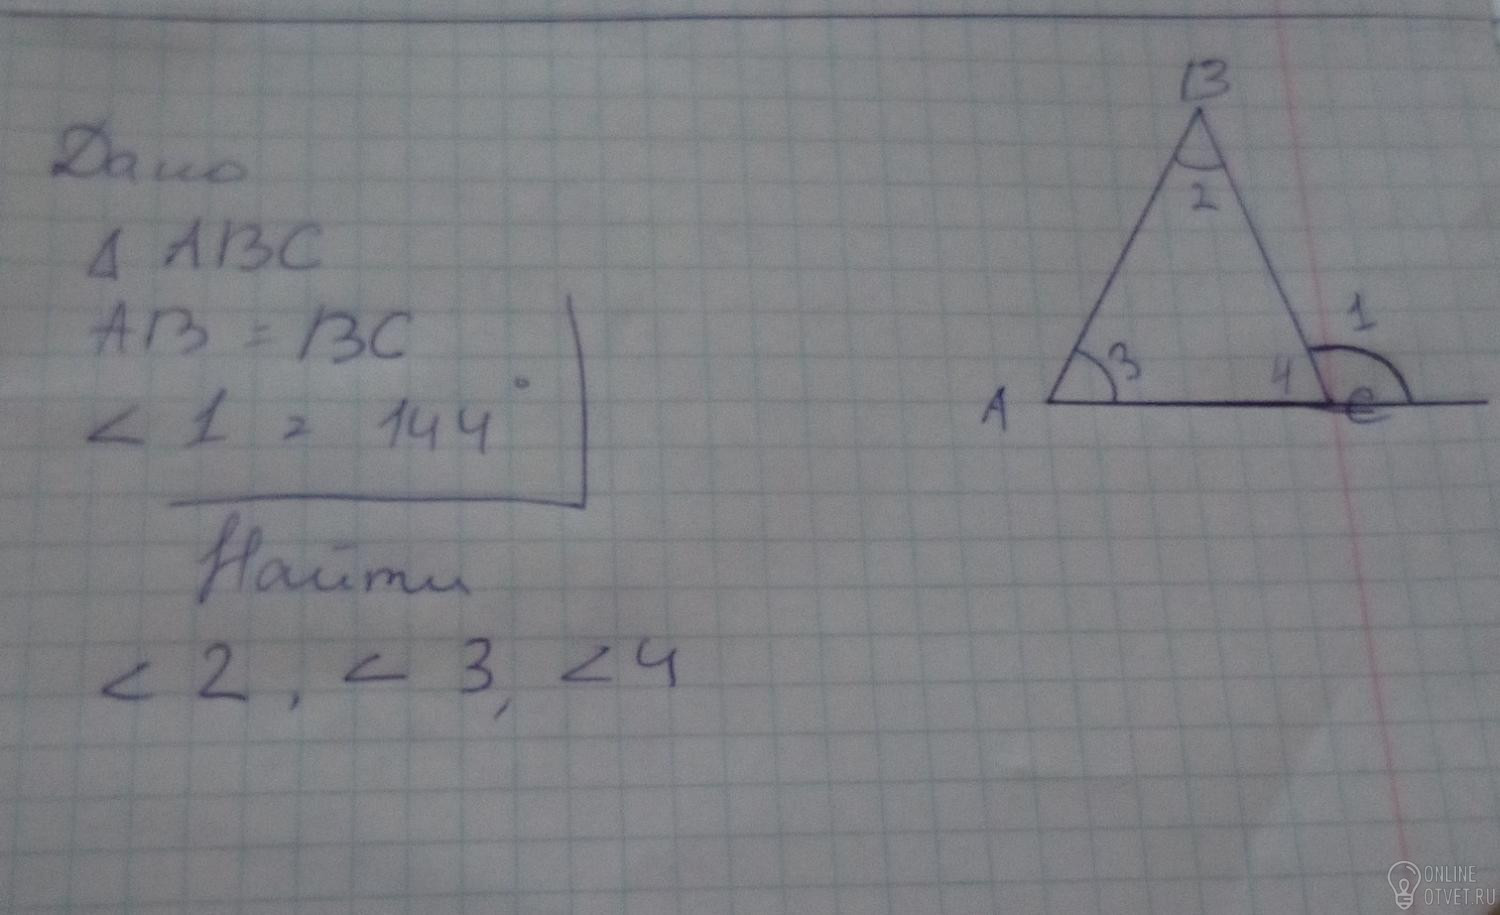 Дано
Δ ABC
AB = BC
< 1 = 144°
Найти
< 2, < 3, < 4
B
2
1
3
4
A
C
ONLINE
OTVET.RU